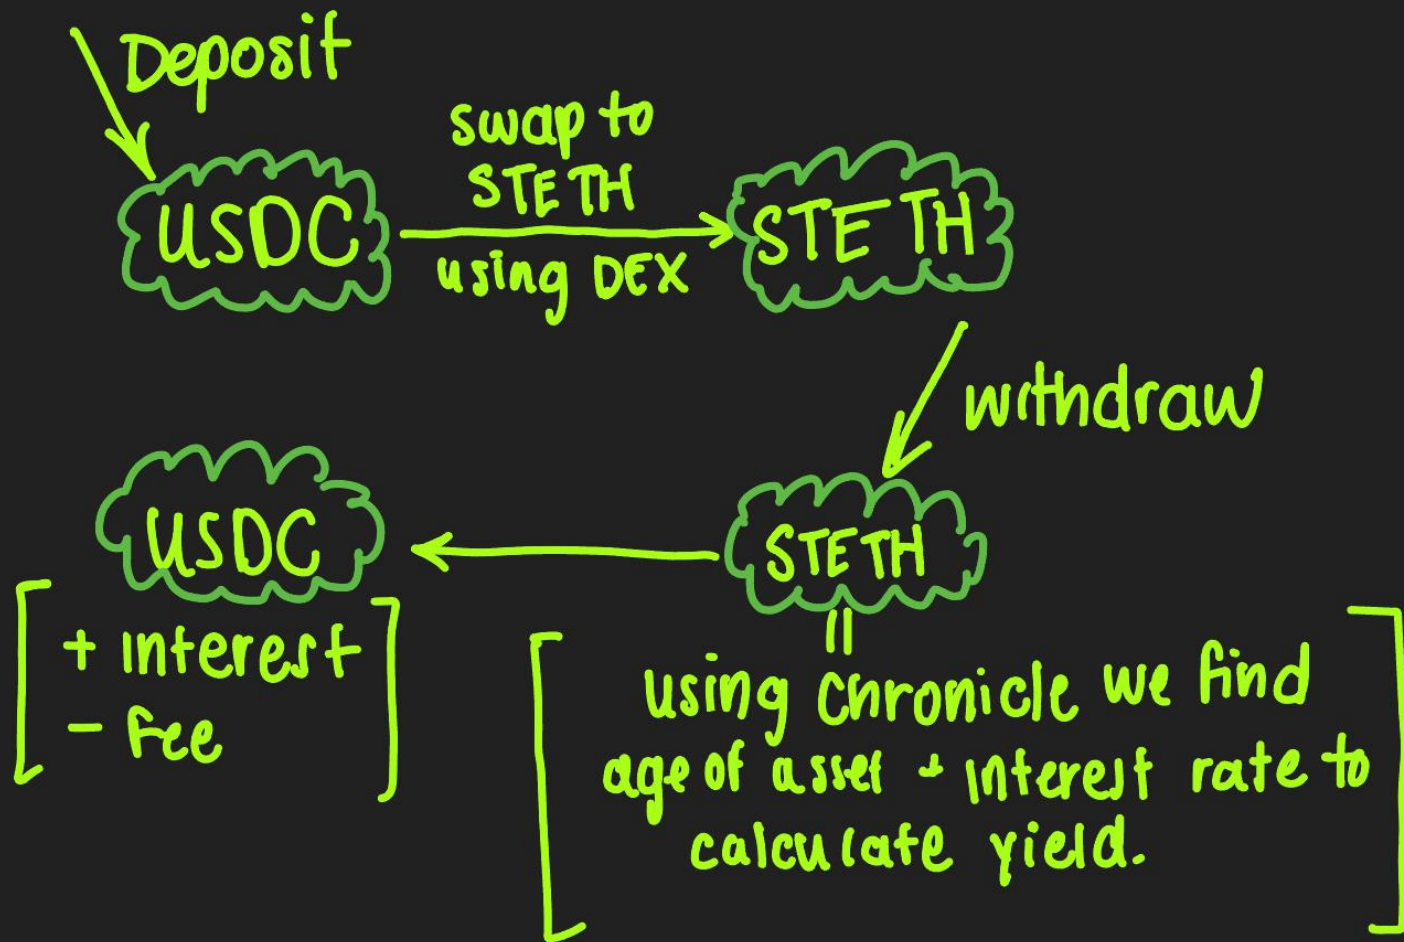 Deposit
swap to
STETH
USDC
using DEX
STETH
withdraw
USDC
+ interest
- Fee
STETH
using chronicle we find
age of asset + interest rate to
calculate yield.